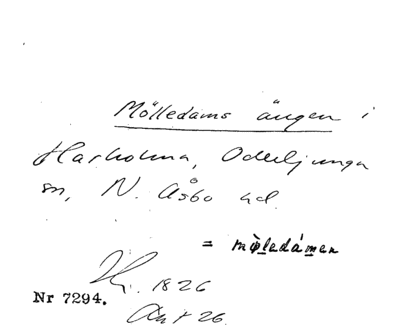 Mölledams ängen i
Harholma, Oderljunga
sn, N. Åsbo hd.
= mø̀ledámen
Hj. 1826
Nr 7294.
Akt 26